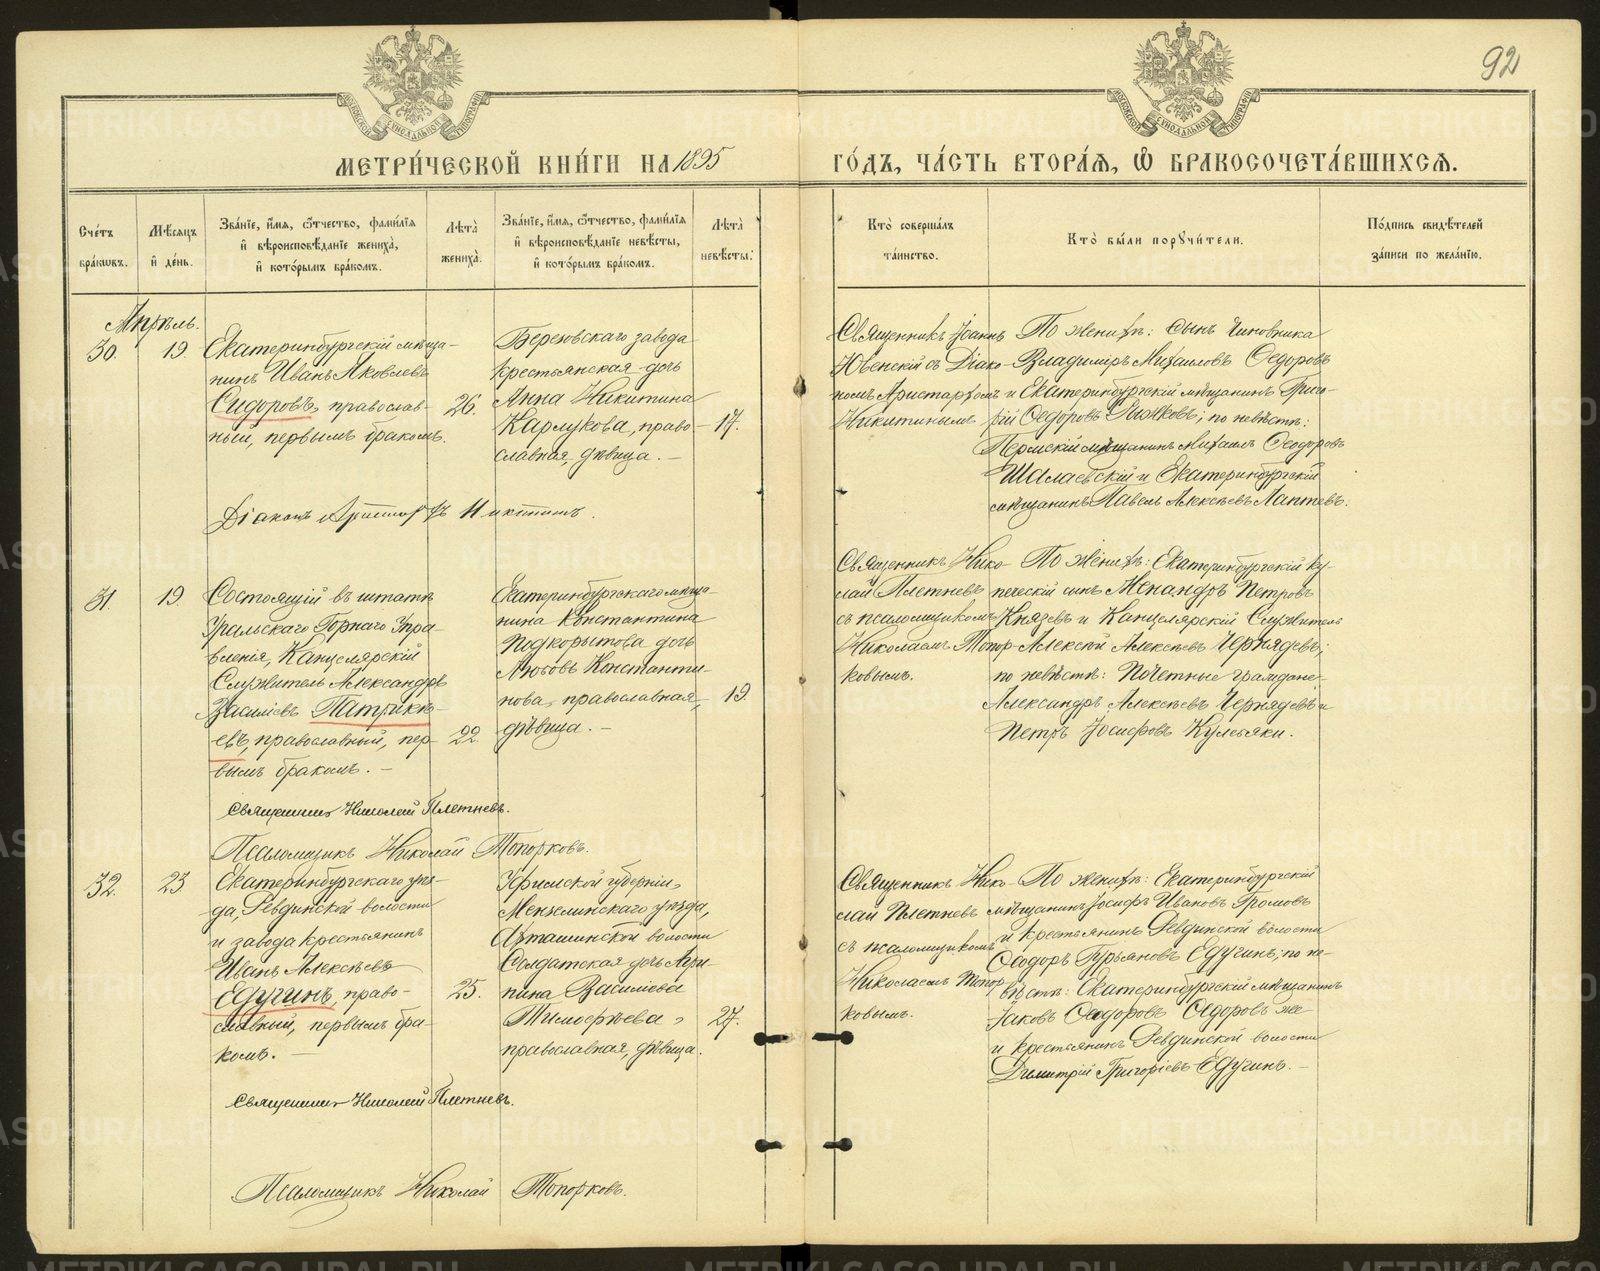 92
МЕТРИ́ЧЕСКОЙ КНИ́ГИ НА 1895 ГО́ДЪ, ЧА́СТЬ ВТОРА́Я, Ѡ БРАКОСОЧЕТА́ВШИХСЯ.
Сче́тъ бра́кѡвъ.
Мѣ́сяцъ и҆ де́нь.
Зва́нїе, и҆́мя, ѻ҆́тчество, фами́лїя и҆ вѣроисповѣ́данїе жениха̀, и҆ кото́рымъ бра́комъ.
Лѣта̀ жениха̀.
Зва́нїе, и҆́мя, ѻ҆́тчество, фами́лїя и҆ вѣроисповѣ́данїе невѣ́сты, и҆ кото́рымъ бра́комъ.
Лѣта̀ невѣ́сты.
Кто̀ соверша́лъ та́инство.
Кто̀ бы́ли порꙋчи́тели.
По́дпись свидѣ́телей за́писи по жела́нїю.
Апрѣль.
30.
19.
Екатеринбургскій мѣща-
нинъ Иванъ Яковлевъ
Сидоровъ, православ-
ный, первымъ бракомъ.
26.
Березовскаго завода
крестьянская дочь
Анна Никитина
Карлукова, право-
славная, дѣвица. –
17.
Священникъ Іоаннъ
Ювенскій съ Діако-
номъ Аристархомъ
Никитинымъ
По женихѣ: сынъ Чиновника
Владимиръ Михаиловъ Ѳедоровъ
и Екатеринбургскій мѣщанинъ Григо-
рій Ѳедоровъ Рыжковъ; по невѣстѣ:
Пермскій мѣщанинъ Михаилъ Ѳеодоровъ
Шалаевскій и Екатеринбургскій
мѣщанинъ Павелъ Алексѣевъ Лаптевъ.
Діаконъ Аристархъ Никитинъ.
31.
19
Состоящій въ штатѣ
Уральскаго Горнаго Упра-
вленія, Канцелярскій
Служитель Александръ
Василіевъ Патрикѣ-
евъ, православный, пер-
вымъ бракомъ. –
22
Екатеринбургскаго мѣща-
нина Константина
Подкорытова дочь
Любовь Константи-
нова, православная,
дѣвица. –
19.
Священникъ Нико-
лай Плетневъ
съ псаломщикомъ
Николаемъ Топор-
ковымъ.
По женихѣ: Екатеринбургскій ку-
печескій сынъ Менандръ Петровъ
Князевъ и Канцелярскій Служитель
Алексѣй Алексѣевъ Чернядевъ;
по невѣстѣ: Почетные граждане
Александръ Алексѣевъ Чернядевъ и
Петръ Іосифовъ Кулебяки.
Священникъ Николай Плетневъ.
Псаломщикъ Николай Топорковъ.
32.
23
Екатеринбургскаго уѣз-
да, Ревдинской волости
и завода крестьянинъ
Иванъ Алексѣевъ
Едугинъ, право-
славный, первымъ бра-
комъ. –
25.
Уфимской губерніи,
Мензелинскаго уѣзда,
волости
Солдатская дочь Агри-
пина Василіева
Тимофѣева,
православная, дѣвица.
27.
Священникъ Нико-
лай Плетневъ
съ псаломщикомъ
Николаемъ Топор-
ковымъ.
По женихѣ: Екатеринбургскій
мѣщанинъ Іосифъ Ивановъ Громовъ
и крестьянинъ Ревдинской волости
Ѳеодоръ Гурьяновъ Едугинъ; по не-
вѣстѣ: Екатеринбургскій мѣщанинъ
Іаковъ Ѳеодоровъ Ѳедоровъ же
и крестьянинъ Ревдинской волости
Димитрій Григоріевъ Едугинъ. –
Священникъ Николай Плетневъ.
Псаломщикъ Николай Топорковъ.
METRIKI.GASO-URAL.RU